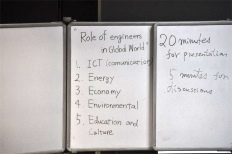 "Role of engineers
in Global World"
1. ICT (comunication)
2. Energy
3. Economy
4. Environmental
5. Education and
Culture
20 minutes
for presentation
5 minutes for
discussions